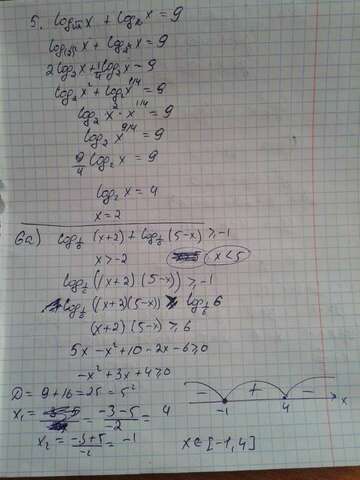 5. log√2 x + log₂ x = 9
2log₂x + ¼log₂x = 9
log₂x² + log₂x^1/4 = 9
log₂ x² · x^1/4 = 9
log₂ x^9/4 = 9
9/4 log₂ x = 9
log₂ x = 4
x = 2
6a) log_1/6 (x+2) + log_1/6 (5-x) ≥ -1
x > -2 x < 5
log_1/6 ((x+2)(5-x)) ≥ -1
log_1/6 ((x+2)(5-x)) ≥ log_1/6 6
(x+2)(5-x) ≥ 6
5x - x² + 10 - 2x - 6 ≥ 0
-x² + 3x + 4 ≥ 0
D = 9 + 16 = 25 = 5²
- + -
-1 4 x
x₁ = = (-3-5)/-2 = 4
x₂ = (-3+5)/-2 = -1
x ∈ [-1, 4]